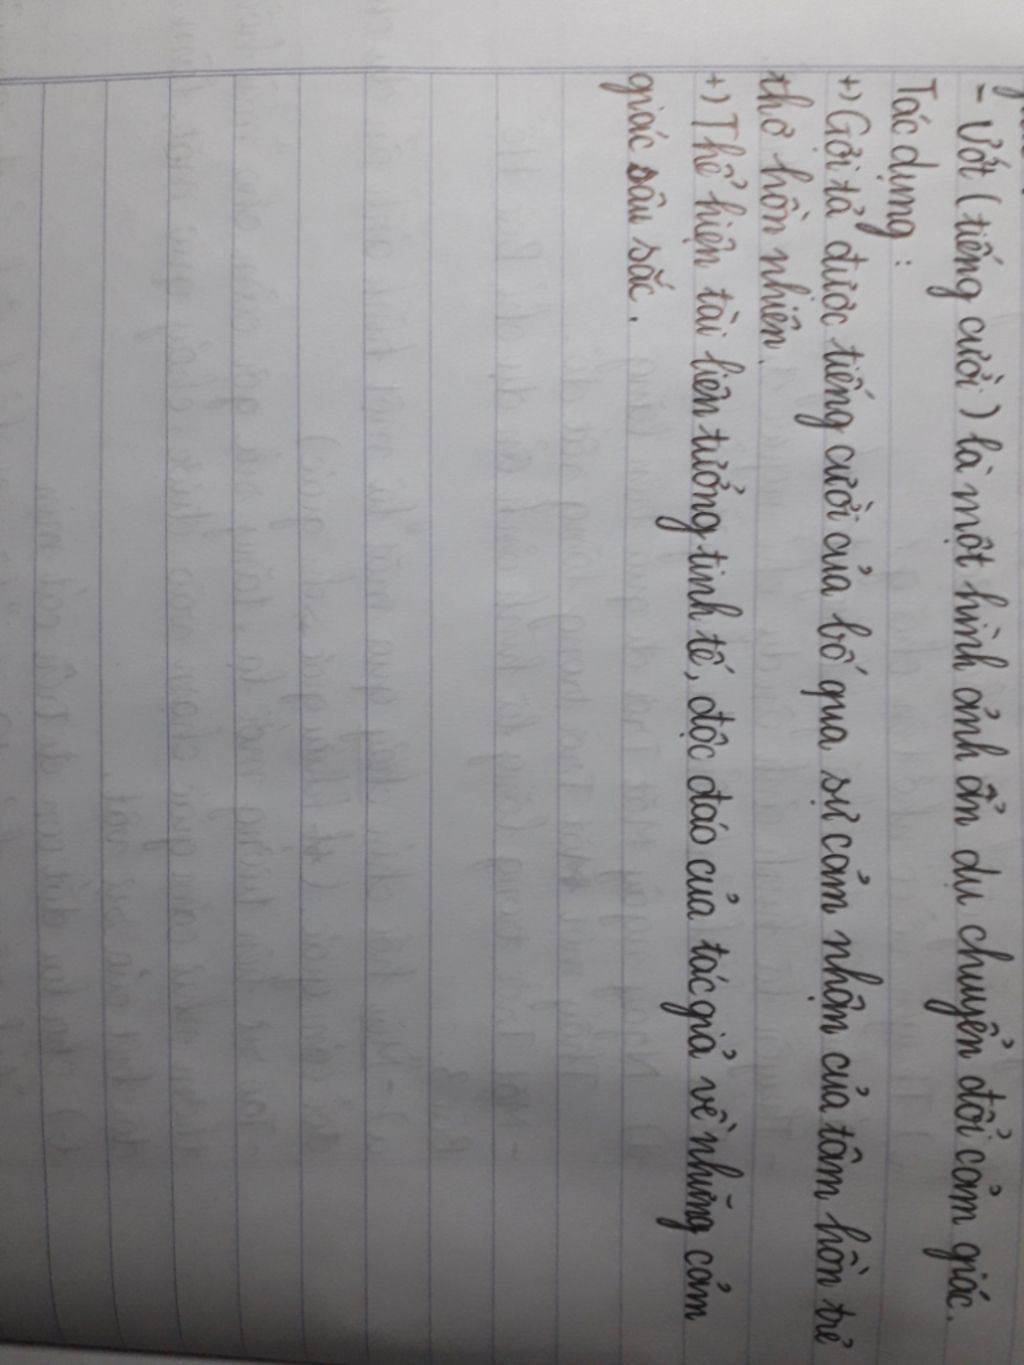 - Ướt (tiếng cười) là một hình ảnh ẩn dụ chuyển đổi cảm giác.
Tác dụng:
+) Gợi tả được tiếng cười của bố qua sự cảm nhận của tâm hồn trẻ
thơ hồn nhiên.
+) Thể hiện tài liên tưởng tinh tế, độc đáo của tác giả về những cảm
giác sâu sắc.